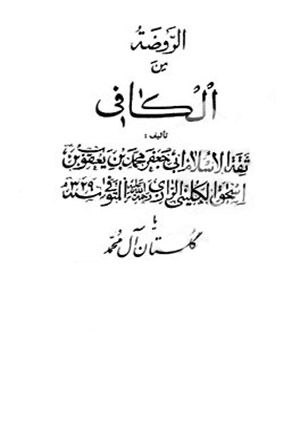 الرَّوضَةُ
مِنَ
اَلْكافي
تأليف :
ثقة الاسلام ابی جعفر محمد بن یعقوب بن
اسحق الکلینی الرازی رحمه الله المتوفی سنه ۳۲۹
یا
گلستان آل محمّد